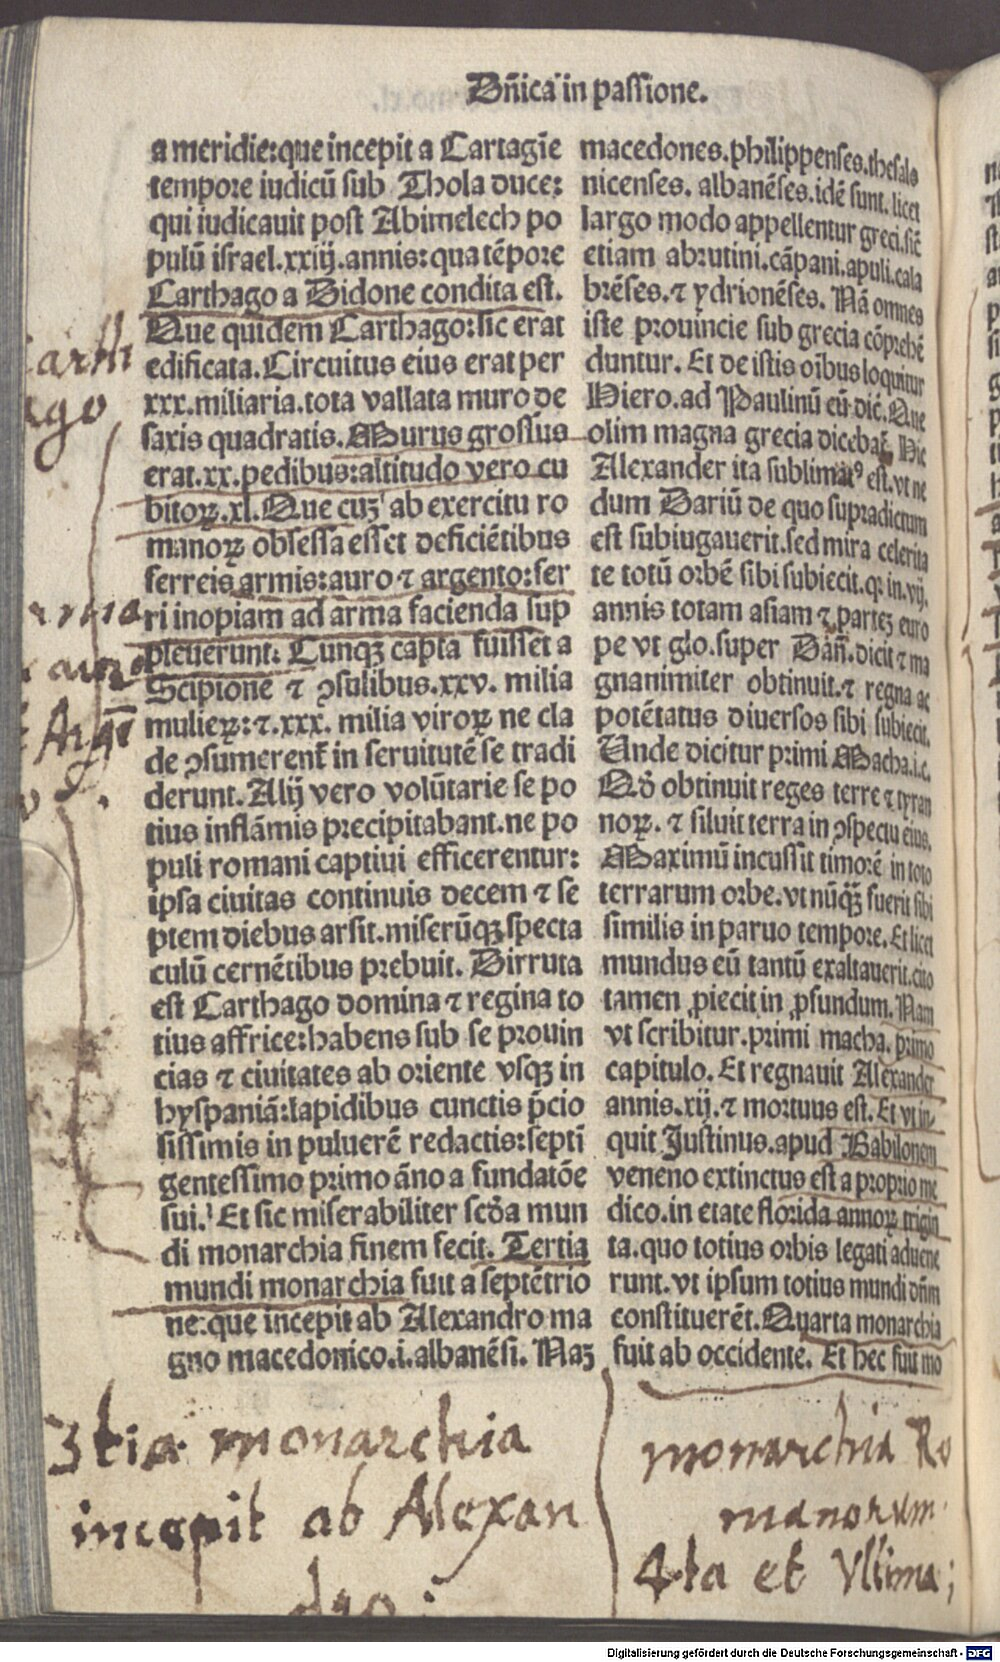 Dñica in passione.
a meridie:que incepit a Cartagīe
tempore iudicū sub Thola duce:
qui iudicauit post Abimelech po
pulū israel.xxiij.annis:qua tēpore
Carthago a Didone condita est.
Que quidem Carthago:sic erat
edificata.Circuitus eius erat per
xxx.miliaria.tota vallata muro de
saxis quadratis.Murus grossus
erat.xx.pedibus:altitudo vero cu
bitoꝝ.xl.Que cuꝫ ab exercitu ro
manoꝝ obsessa esset deficiētibus
ferreis armis:auro ⁊ argento:fer
ri inopiam ad arma facienda sup
pleuerunt. Cunqꝫ capta fuisset a
Scipione ⁊ ꝯsulibus.xxv. milia
mulieꝝ:⁊.xxx. milia viroꝝ ne cla
de ꝯsumerent̄ in seruitutē se tradi
derunt.Alij vero volūtarie se po
tius inflāmis precipitabant.ne po
puli romani captiui efficerentur:
ipsa ciuitas continuis decem ⁊ se
ptem diebus arsit.miserūqꝫ specta
culū cernētibus prebuit. Dirruta
est Carthago domina ⁊ regina to
tius affrice:habens sub se prouin
cias ⁊ ciuitates ab oriente vsqꝫ in
hyspaniā:lapidibus cunctis p̄cio
sissimis in puluerē redactis:septī
gentessimo primo āno a fundatōe
sui. Et sic miserabiliter scd̄a mun
di monarchia finem fecit. Tertia
mundi monarchia fuit a septētrio
ne:que incepit ab Alexandro ma
gno macedonico.i.albanēsi. Naꝫ
macedones.philippenses.thesalo
nicenses. albanēses.idē sunt. licet
largo modo appellentur greci.sic̄
etiam abrutini.cāpani.apuli.cala
brēses.⁊ ydrionēses. Nā omnes
iste prouincie sub grecia cōprehē
duntur. Et de istis oībus loquitur
Hiero.ad Paulinū cū dic̄. Que
olim magna grecia dicebat̄. Hic
Alexander ita sublimatꝰ est.vt ne
dum Dariū de quo supradictum
est subiugauerit.sed mira celerita
te totū orbē sibi subiecit.qꝛ in.vij.
annis totam asiam ⁊ parteꝫ euro
pe vt glo.super Dañ.dicit ⁊ ma
gnanimiter obtinuit.⁊ regna ac
potētatus diuersos sibi subiecit.
Unde dicitur primi Macha.i.c.
Qd̄ obtinuit reges terre ⁊ tyran
noꝝ. ⁊ siluit terra in ꝯspectu eius.
Maximū incussit timorē in toto
terrarum orbe.vt nūqꝫ̄ fuerit sibi
similis in paruo tempore. Et licet
mundus eū tantū exaltauerit.cito
tamen ꝓiecit in ꝓfundum. Nam
vt scribitur.primi macha. primo
capitulo. Et regnauit Alexander
annis.xij.⁊ mortuus est. Et vt in-
quit Justinus.apud Babilonem
veneno extinctus est a proprio me
dico.in etate florida annoꝝ trigin
ta.quo totius orbis legati aduene
runt.vt ipsum totius mundi dn̄m
constituerēt. Quarta monarchia
fuit ab occidente. Et hec fuit mo
Carth
ago
arma
auro
Argē
3tia monarchia
incepit ab Alexan
dro :
monarchia Ro
manorum
4ta et Vltima;
Digitalisierung gefördert durch die Deutsche Forschungsgemeinschaft - DFG